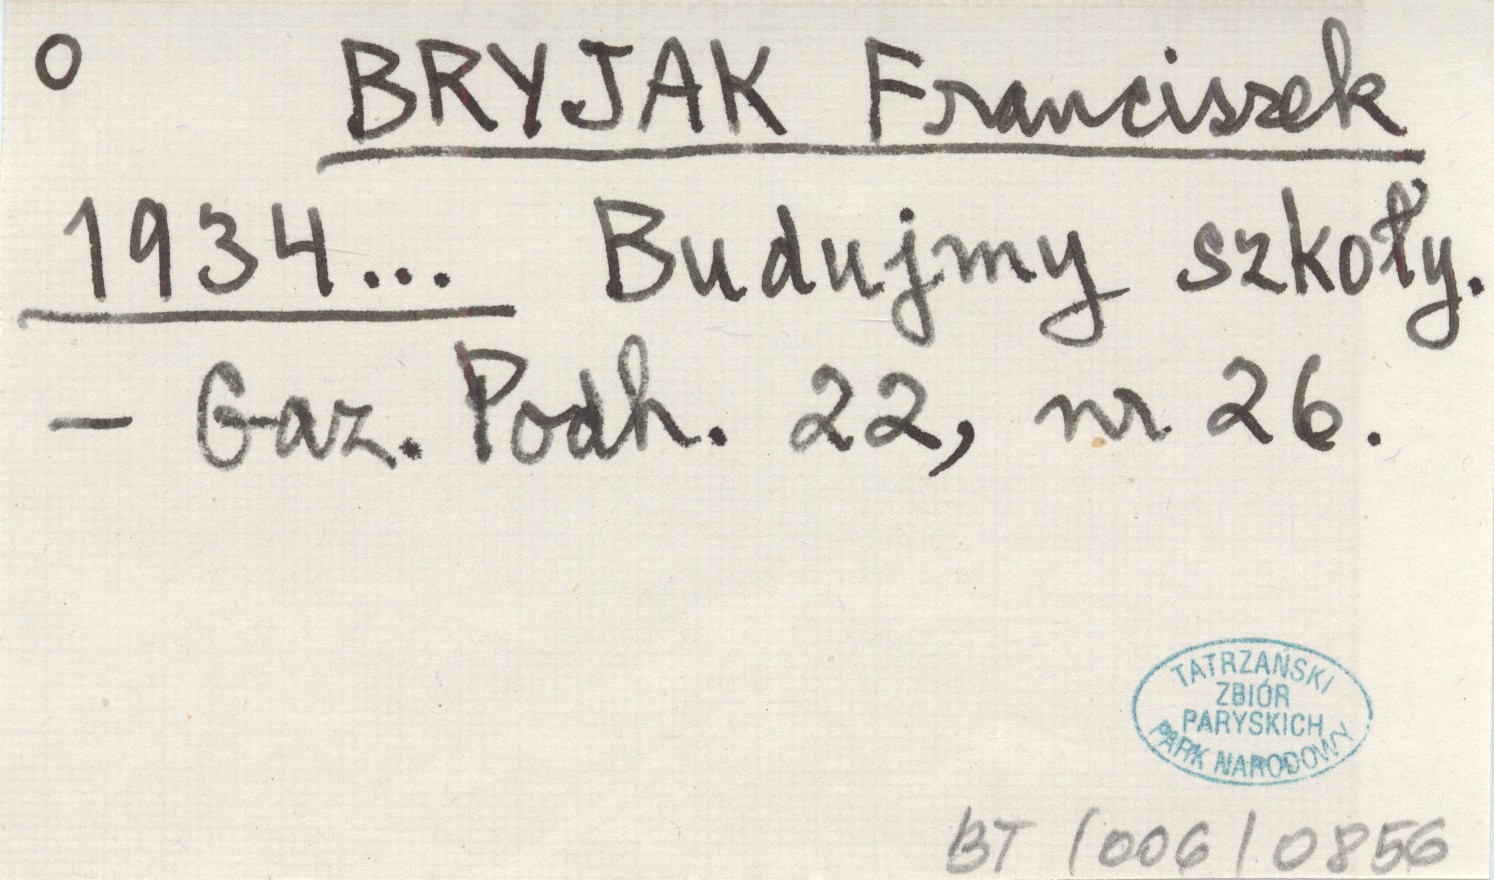 o BRYJAK Franciszek
1934... Budujmy szkoły.
– Gaz. Podh. 22, nr 26.
TATRZAŃSKI
ZBIÓR
PARYSKICH
PARK NARODOWY
BT /006/0856